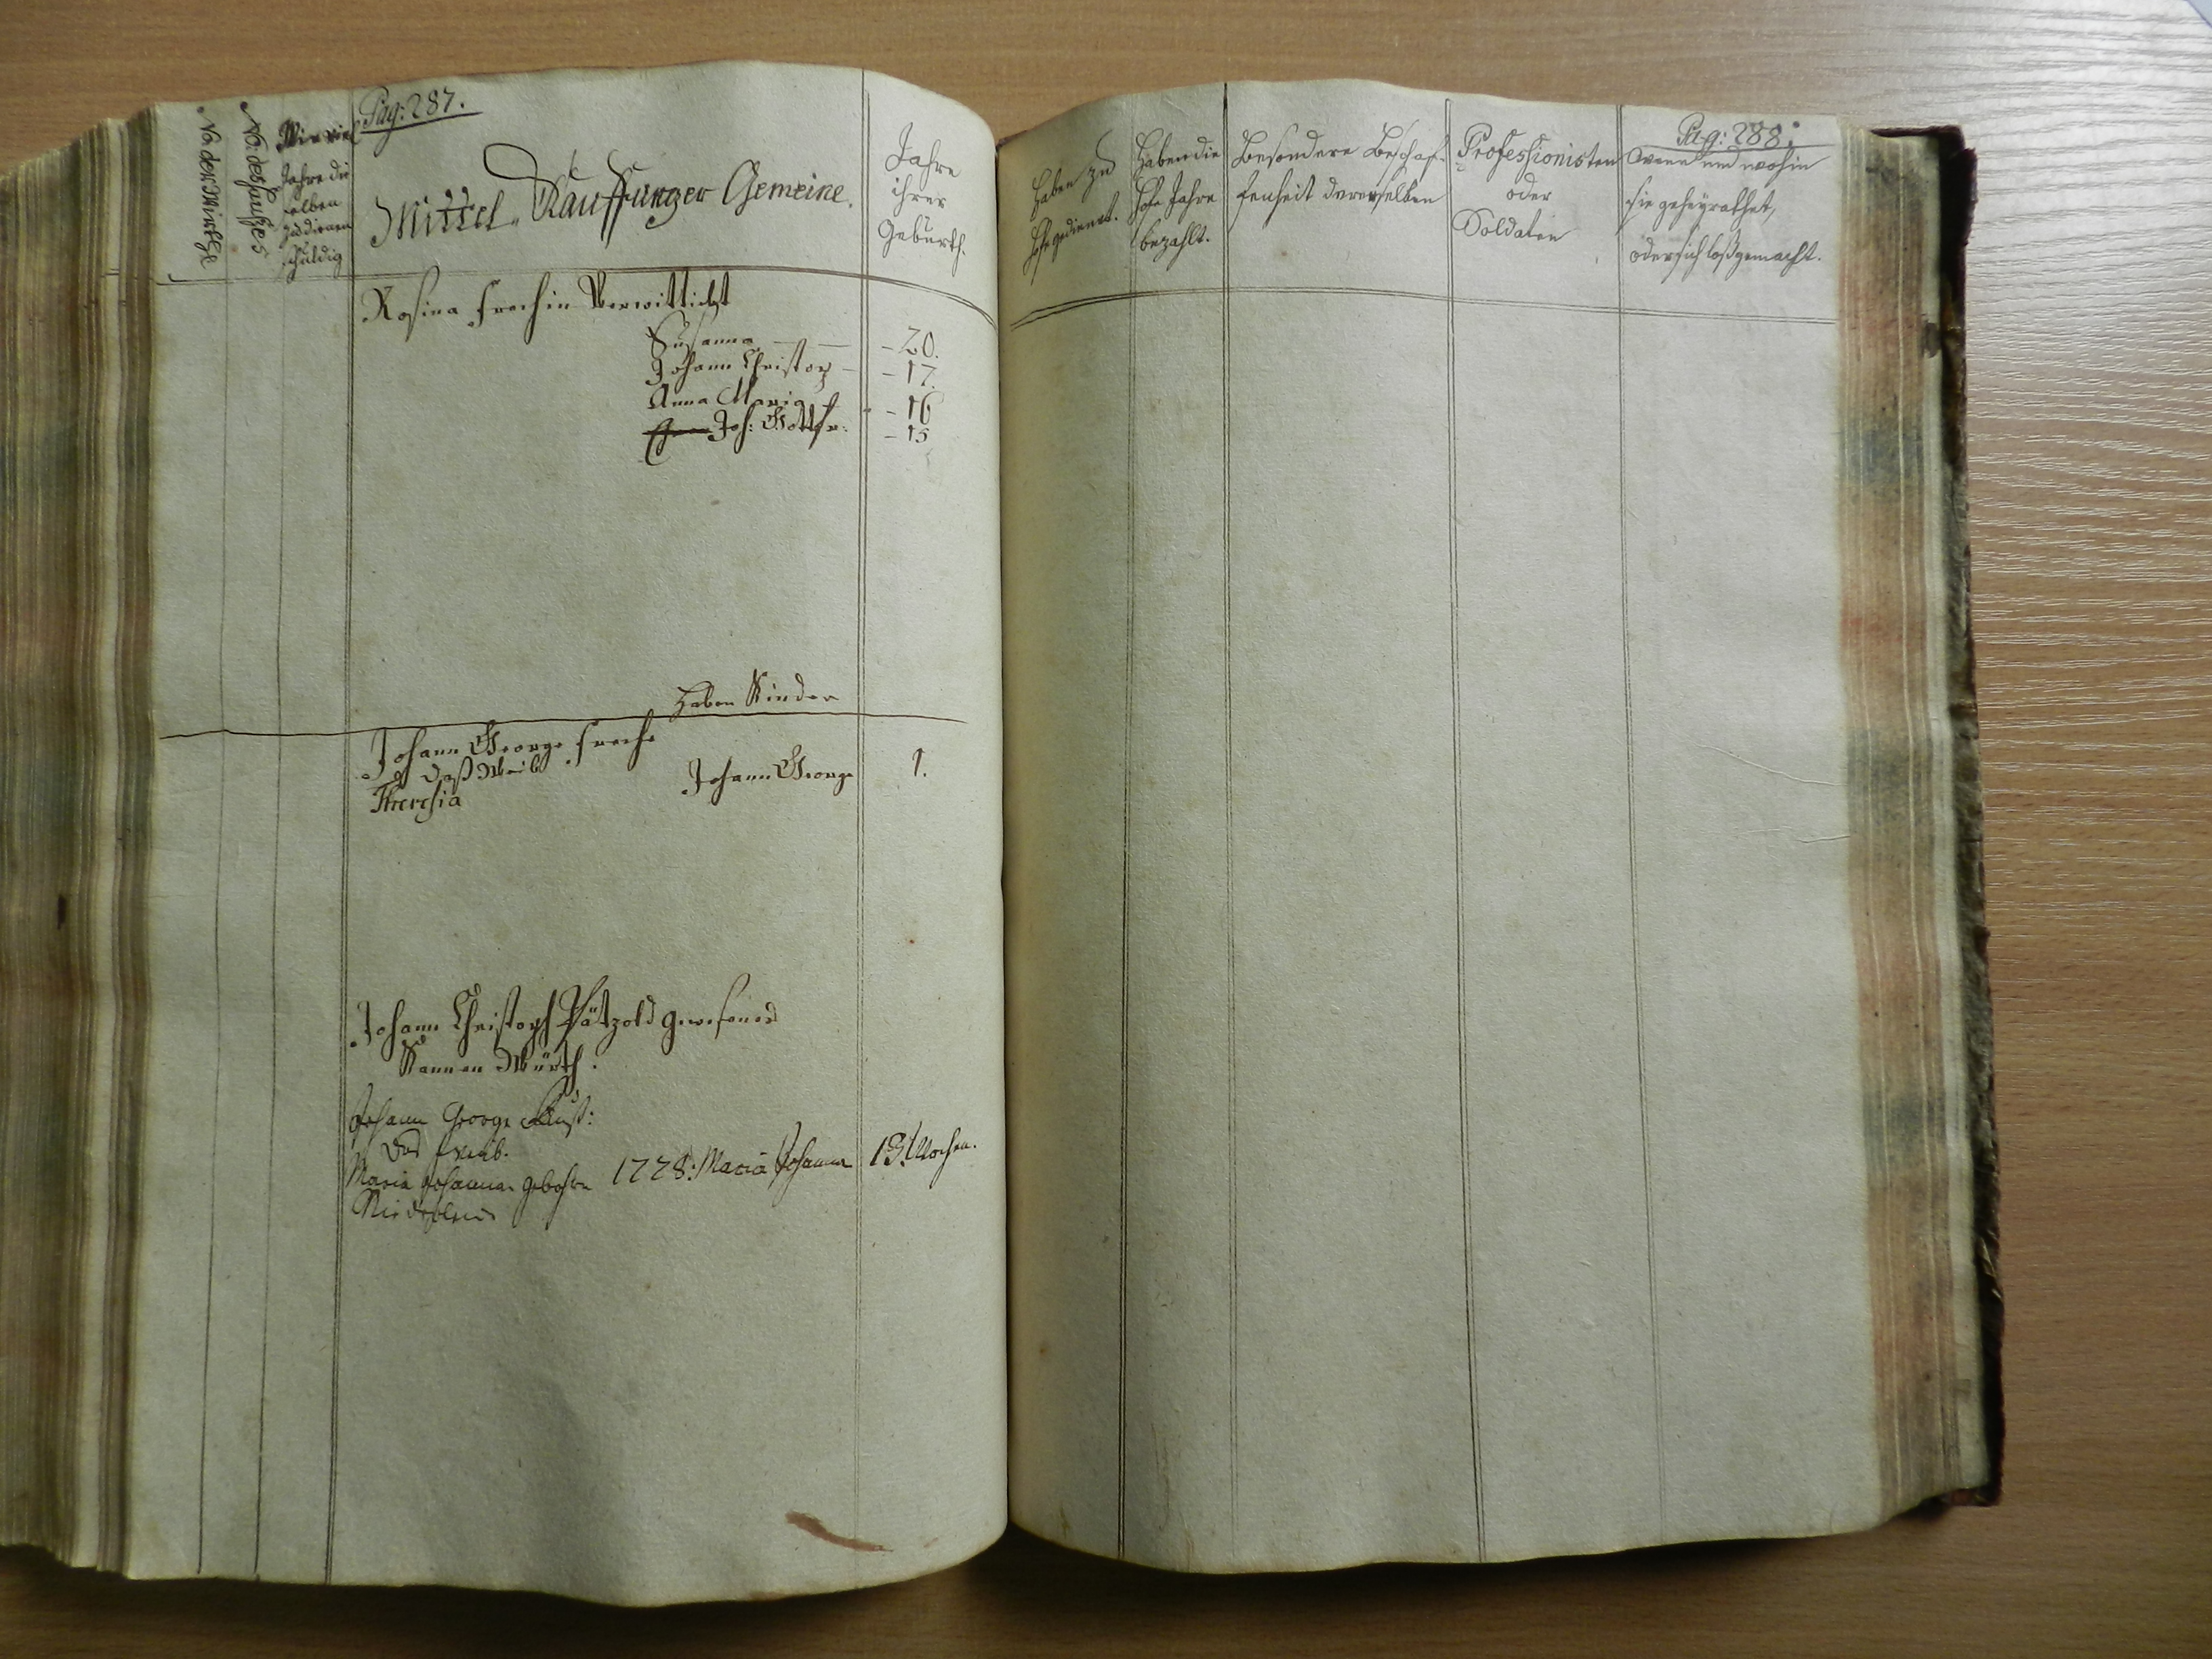 Pag: 287.
No. der Wirthe
No. des Hauses
Wie viel
Jahre die
selben
zu dienen
schuldig
Mittel-Kauffunger Gemeine.
Jahre
ihrer
Geburth.
Rosina Frechin Verwittibst
Susanna — — - 20.
Johann Christop - - 17.
Anna Maria - 16
Joh: Gottfr: - 15
Haben Kinder
Johann George Freche
Daß Weib
Theresia
Johann George 1.
Johann Christoph Pätzold gewesener
Kannen Würth.
Johann George
Das Weib.
Maria Johanna gebohrn 1778: Maria Johanna 13 Wochen.
Pag: 288.
Haben zu
Hofe gedienet.
Haben die
Hofe Jahre
bezahlt.
Besondere Beschaf-
fenheit derer selben
Professionisten
oder
Soldaten
Wenn und wohin
sie geheyrathet,
oder sich loßgemacht.